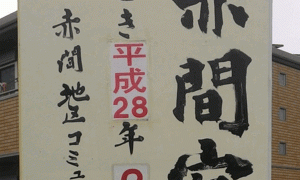 赤間宿
き平成28年9
赤間地区コミュ